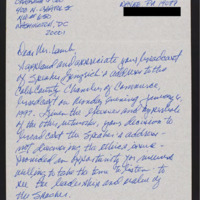 400 N. Capitol St
Washington, DC
20001
Dear Mr. Lamb,
I applaud and appreciate your broadcast
of Speaker Gingrich's address to the
Cobb County Chamber of Commerce
broadcast on Monday morning, January 6,
1997. Given the absence and
of the other networks, your decision to
broadcast the Speaker's address -
not discussing the ethics issue -
provided an opportunity for
willing to take the time to listen - to
see the leadership and
the Speaker.